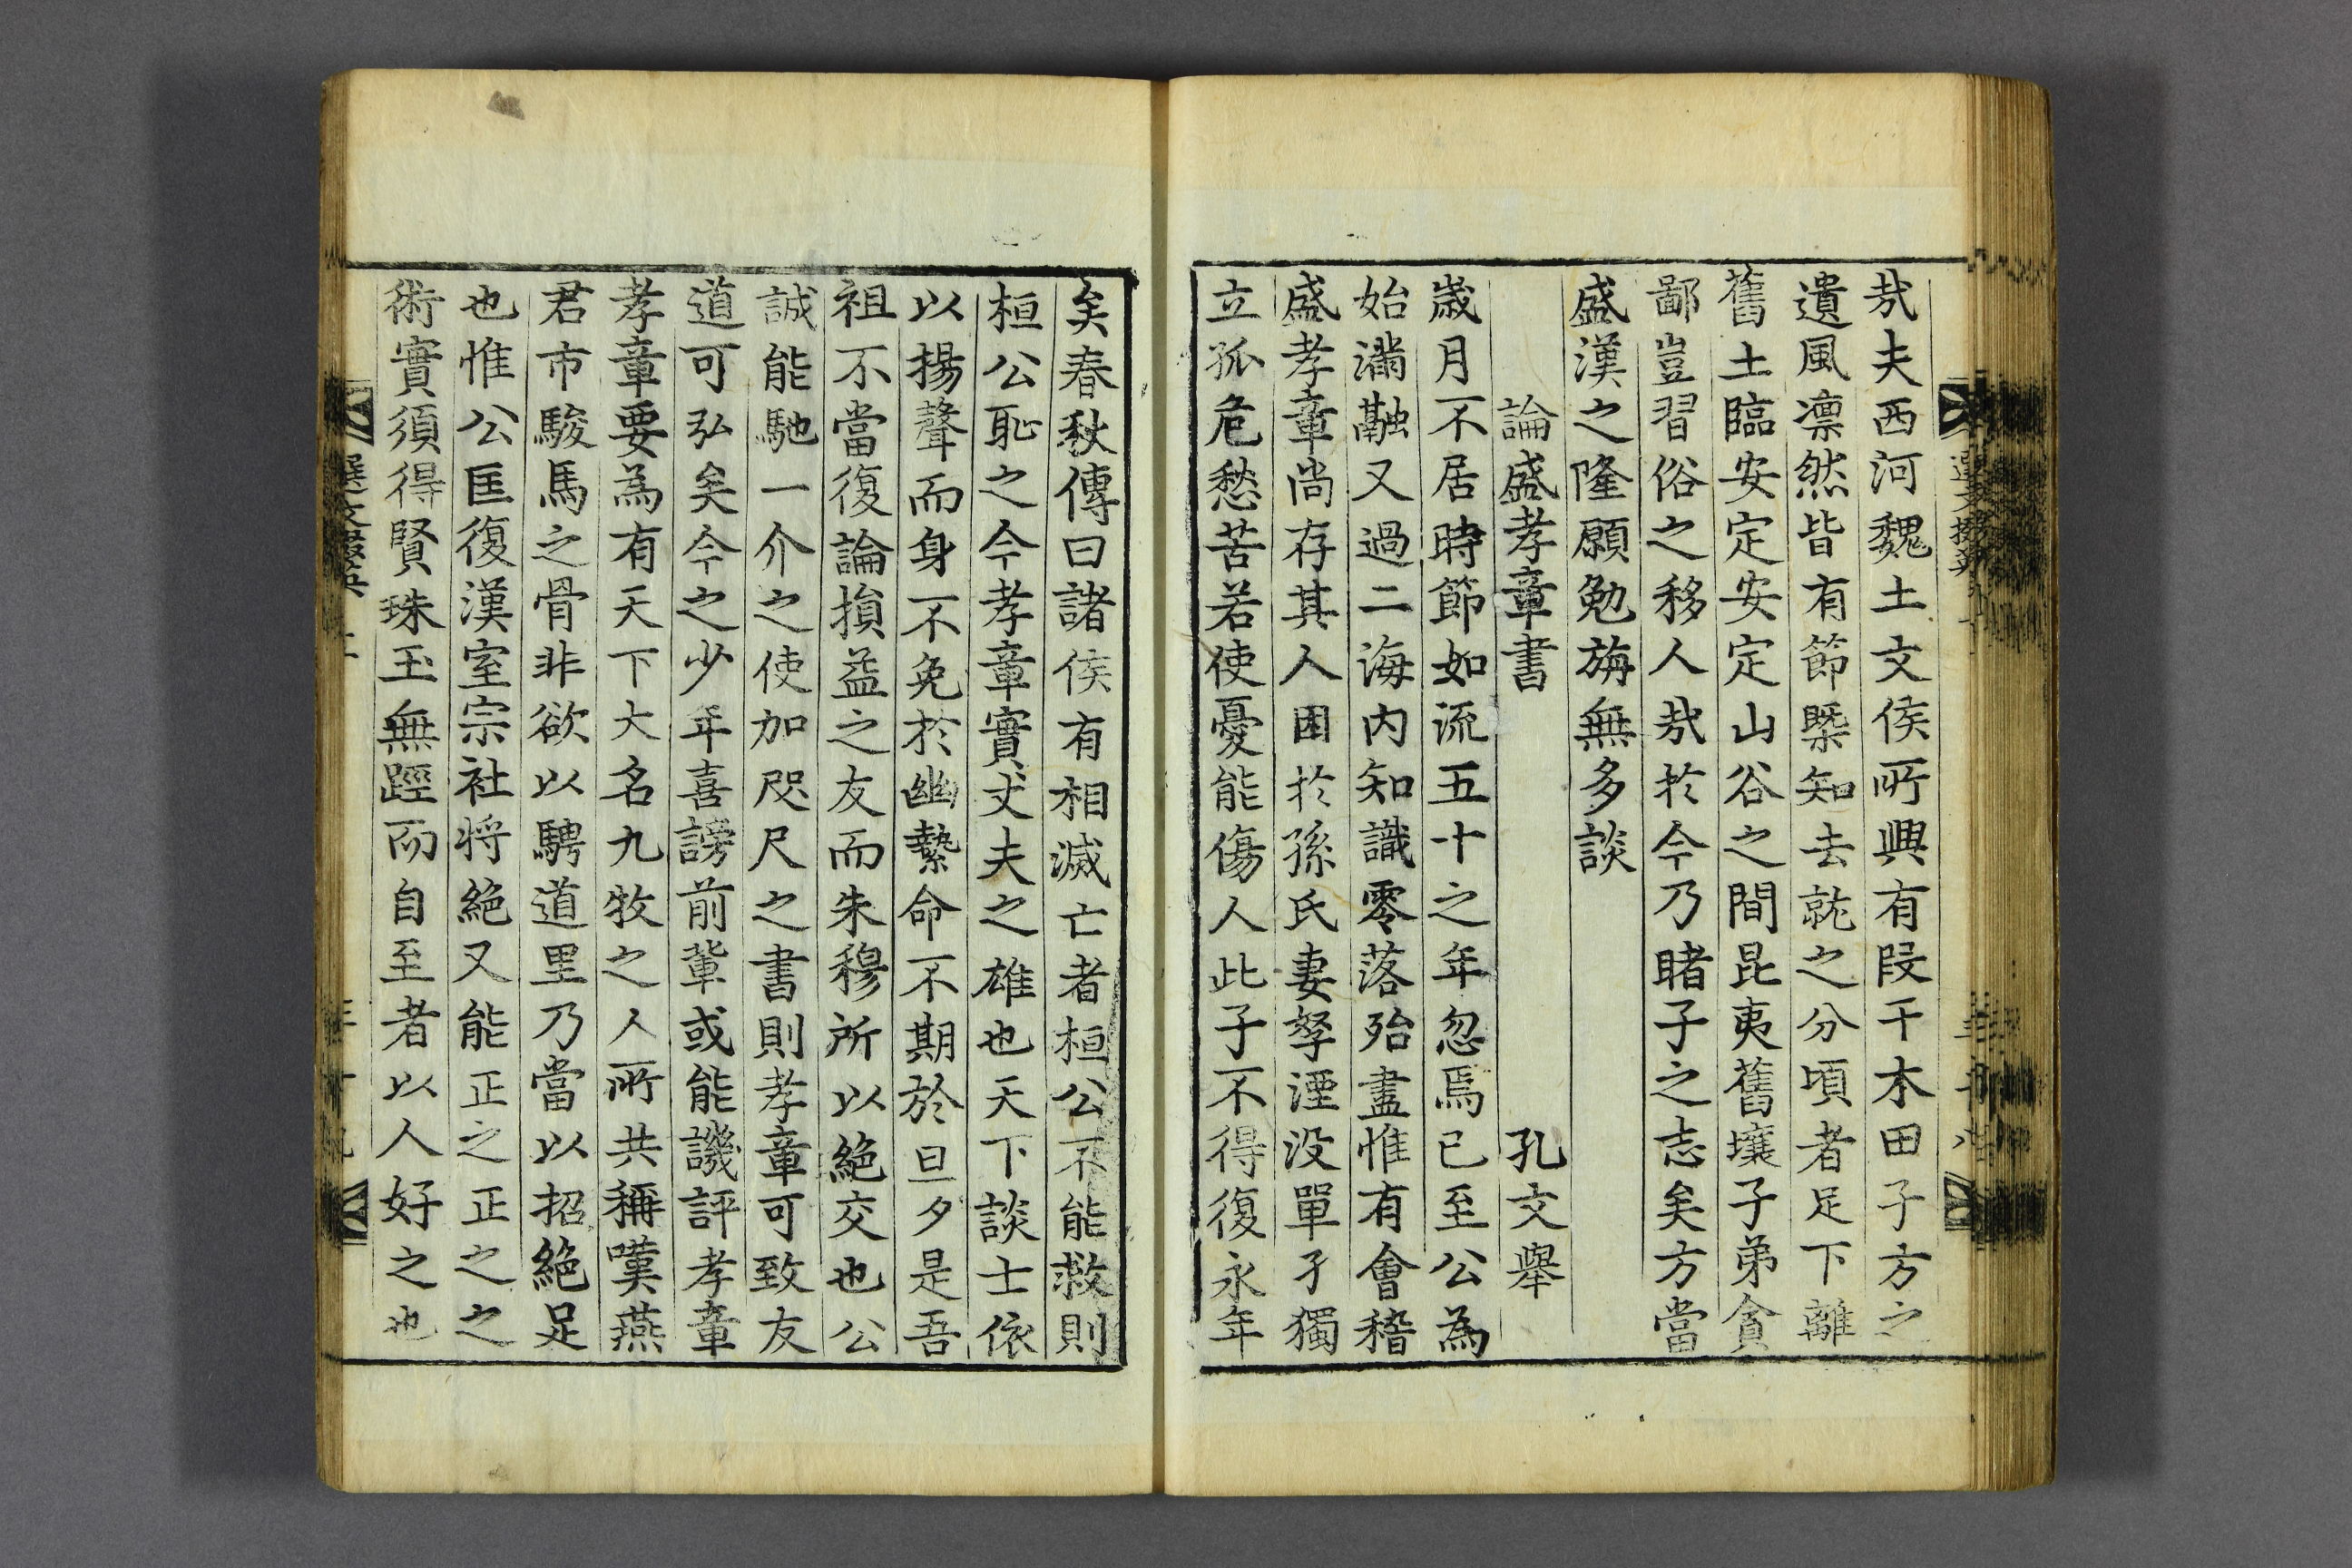 㢤夫西河魏土文侯所興有段干木田子方之
遺風凛然皆有節槩知去就之分頃者足下離
舊土臨安定安定山谷之間昆夷舊壤子弟貪
鄙豈習俗之移人㢤於今乃睹子之志矣方當
盛漢之隆願勉旃無多談
論盛孝章書 孔文舉
歳月不居時節如流五十之年忽焉已至公為
始滿融又過二海内知識零落殆盡惟有會稽
盛孝章尚存其人困於孫氏妻孥湮没單孑獨
立孤危愁苦若使憂能傷人此子不得復永年
矣春秋傳曰諸侯有相滅亡者桓公不能救則
桓公恥之今孝章實丈夫之雄也天下談士依
以揚聲而身不免於幽縶命不期於旦夕是吾
祖不當復論損益之友而朱穆所以絶交也公
誠能馳一介之使加咫尺之書則孝章可致友
道可弘矣今之少年喜謗前輩或能譏評孝章
孝章要為有天下大名九牧之人所共稱嘆燕
君市駿馬之骨非欲以騁道里乃當以招絶足
也惟公匡復漢室宗社将絶又能正之正之之
術實須得賢珠玉無踁而自至者以人好之也